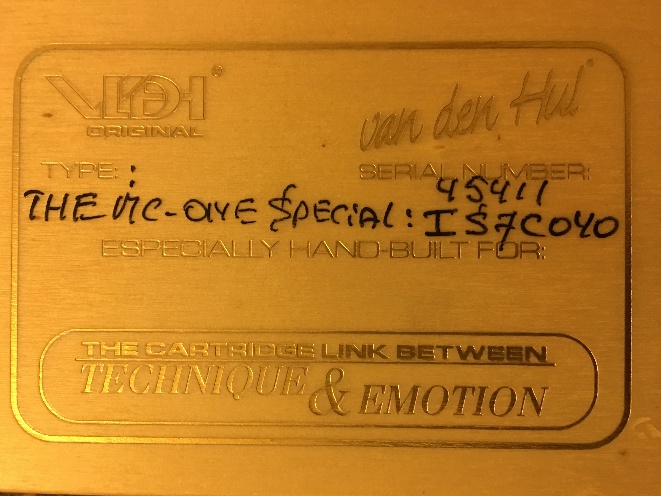 VDH®
ORIGINAL
van den Hul®
TYPE:
SERIAL NUMBER:
45411
THE MC-ONE SPECIAL: IS7C040
ESPECIALLY HAND-BUILT FOR:
THE CARTRIDGE LINK BETWEEN
TECHNIQUE & EMOTION